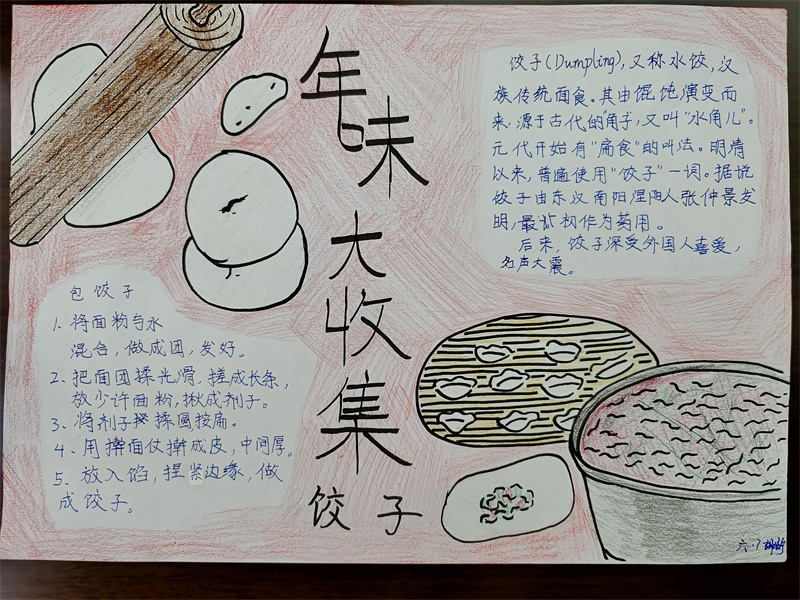 年味大收集
饺子
饺子(Dumpling),又称水饺,汉
族传统面食。其由馄饨演变而
来,源于古代的“角子,又叫“水角儿”。
元代开始有“扁食”的叫法。明清
以来,普遍使用“饺子”一词。据说
饺子由东汉南阳涅阳人张仲景发
明,最初作为药用。
后来,饺子深受外国人喜爱,
名声大震。
包饺子
1、将面粉与水
混合,做成团,发好。
2、把面团揉光滑,搓成长条,
放少许面粉,揪成剂子。
3、将剂子揉圆按扁。
4、用擀面仗擀成皮,中间厚。
5、放入馅,捏紧边缘,做
成饺子。
六·7